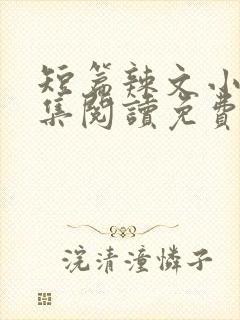 短篇辣文小
集閱讀免費
浣清潼憐子